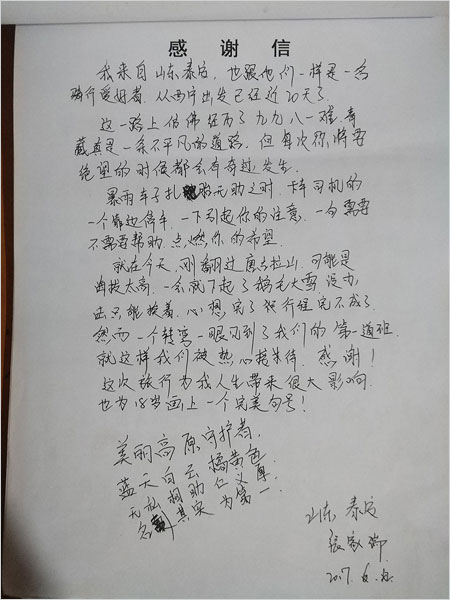 感 谢 信
我来自山东泰安，也跟他们一样是一名
骑行爱好者，从西宁出发已经近20天了。
这一路上仿佛经历了九九八一难，青
藏真是一条不平凡的道路，但每次你将要
绝望的时候都会有奇迹发生。
暴雨车子扎胎无助之时，卡车司机的
一个靠边停车，一下引起你的注意，一句需要
不需要帮助，点燃你的希望。
就在今天，刚翻过唐古拉山，可能是
海拔太高，一会就下起了鹅毛大雪，没办
法只能推着，心想完了骑行经完不成了
然而一个转弯一眼见到了我们的第一道班
就这样我们被热心接来待，感谢！
这次旅行为我人生带来很大影响，
也为18岁画上一个完美句号！
美丽高原守护者，
蓝天白云橘黄色
无私相助仁义厚
名其实为第一。
山东 泰安
张
2017. 6.